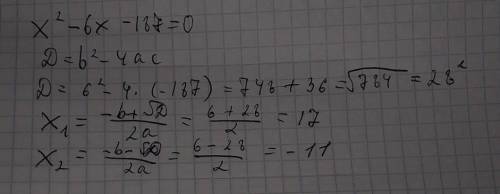 x² - 6x - 187 = 0
D = b² - 4ac
D = 6² - 4 · (-187) = 748 + 36 = √784 = 28²
x₁ = (-b + √D)/2a = (6 + 28)/2 = 17
x₂ = (-b - √D)/2a = (6 - 28)/2 = -11